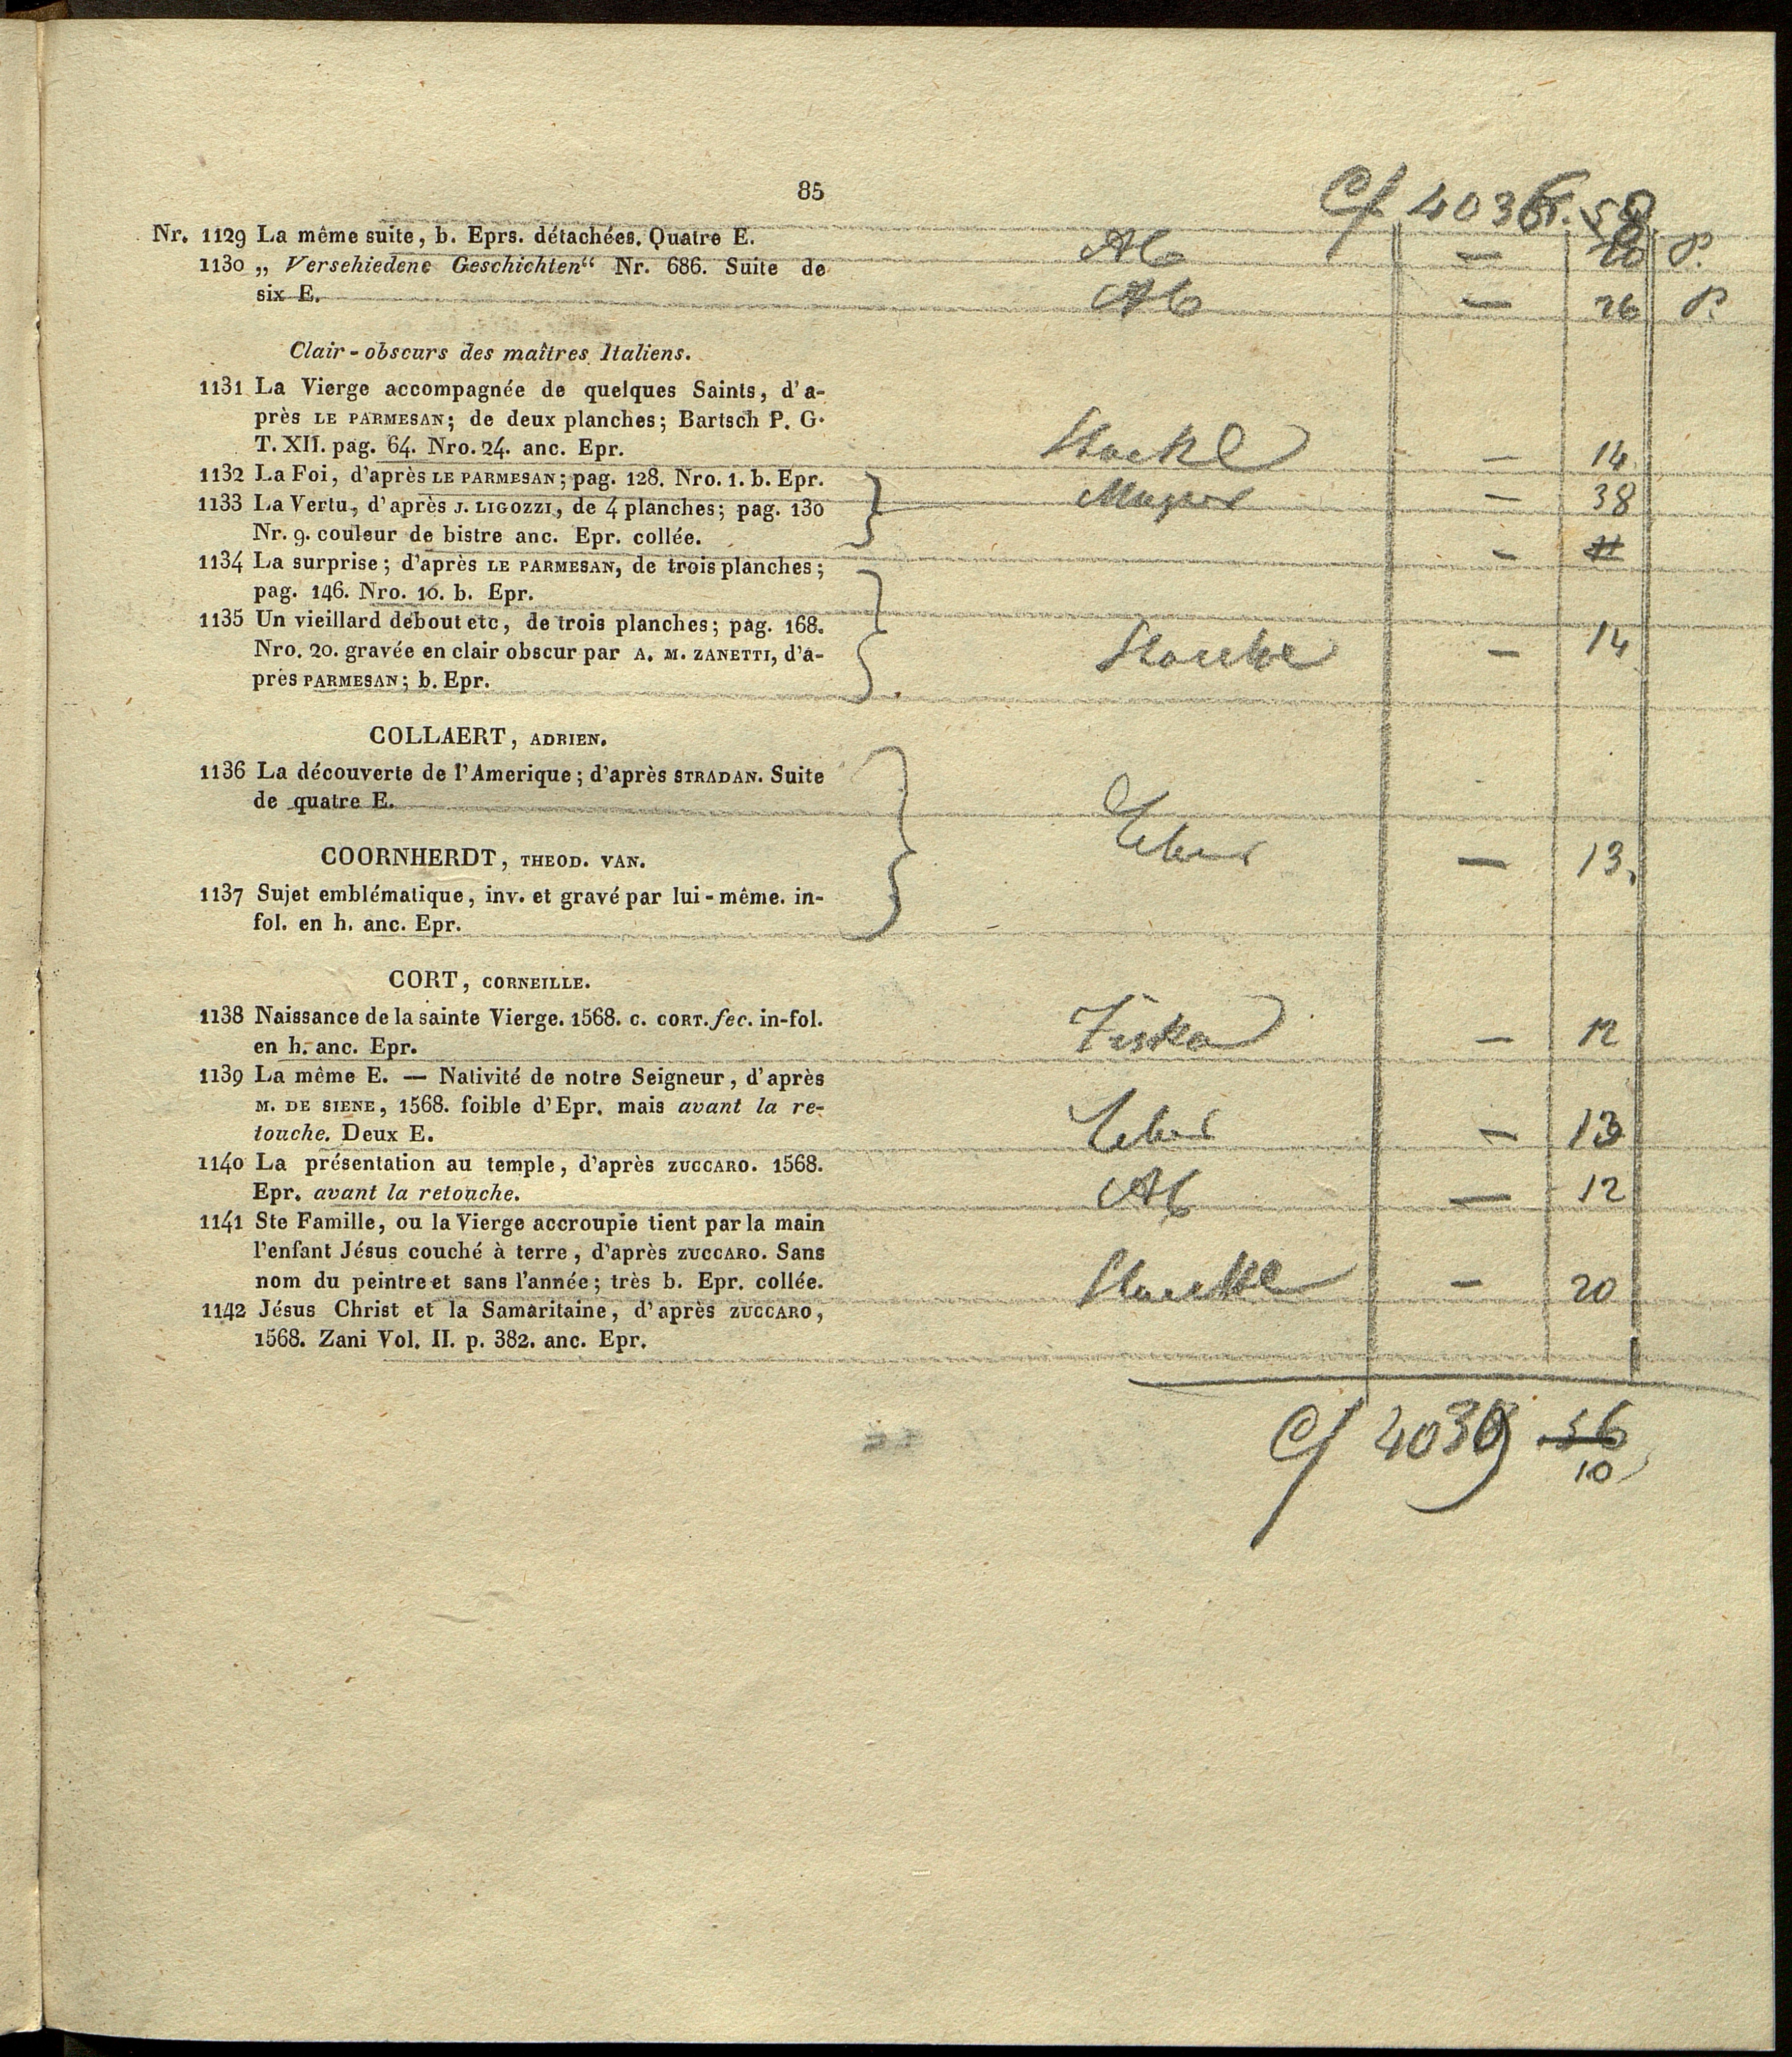 85
Cf 4036. 58
Nr. 1129 La même suite, b. Eprs. détachées. Quatre E. Ab — 20 P.
1130 „ Versehiedene Geschichten“ Nr. 686. Suite de
six E. Ab — 26 P.
Clair-obscurs des maîtres Italiens.
1131 La Vierge accompagnée de quelques Saints, d'a-
près LE PARMESAN; de deux planches; Bartsch P. G.
T. XII. pag. 64. Nro. 24. anc. Epr. Stoekl — 14
1132 La Foi, d'après LE PARMESAN; pag. 128. Nro. 1. b. Epr.
1133 La Vertu, d'après J. LIGOZZI, de 4 planches; pag. 130 — 38
Nr. 9. couleur de bistre anc. Epr. collée. —
1134 La surprise; d'après LE PARMESAN, de trois planches;
pag. 146. Nro. 10. b. Epr.
1135 Un vieillard debout etc, de trois planches; pag. 168.
Nro. 20. gravée en clair obscur par A. M. ZANETTI, d'a- — 14
près PARMESAN; b. Epr.
COLLAERT, ADRIEN.
1136 La découverte de l'Amerique; d'après STRADAN. Suite
de quatre E.
COORNHERDT, THEOD. VAN. — 13.
1137 Sujet emblématique, inv. et gravé par lui-même. in-
fol. en h. anc. Epr.
CORT, CORNEILLE.
1138 Naissance de la sainte Vierge. 1568. C. CORT. fec. in-fol. — 12
en h. anc. Epr.
1139 La même E. — Nativité de notre Seigneur, d'après
M. DE SIENE, 1568. foible d'Epr. mais avant la re-
touche. Deux E. — 13
1140 La présentation au temple, d'après ZUCCARO. 1568.
Epr. avant la retouche. Ab — 12
1141 Ste Famille, ou la Vierge accroupie tient par la main
l'enfant Jésus couché à terre, d'après ZUCCARO. Sans
nom du peintre et sans l'année; très b. Epr. collée. Stoeckl — 20
1142 Jésus Christ et la Samaritaine, d'après ZUCCARO,
1568. Zani Vol. II. p. 382. anc. Epr.
Cf 4039 56
10